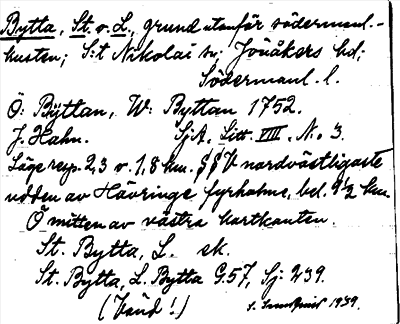 Bytta, St. o. L., grund utanför södermanl.-
kusten; S:t Nikolai sn; Jönåkers hd;
Södermanl. l.
Ö: Byttan, W: Byttan 1752.
J. Hahn. SjA, Litt. VIII, N:o 3.
Läge resp. 2,3 o. 1,8 km. SSV nordvästligaste
udden av Hävringe fyrholme, bel. 9½ km.
Ö mitten av västra kartkanten.
St. Bytta, L. ek.
St. Bytta, L. Bytta G.57, Sj 239.
(Vänd!) 1939.